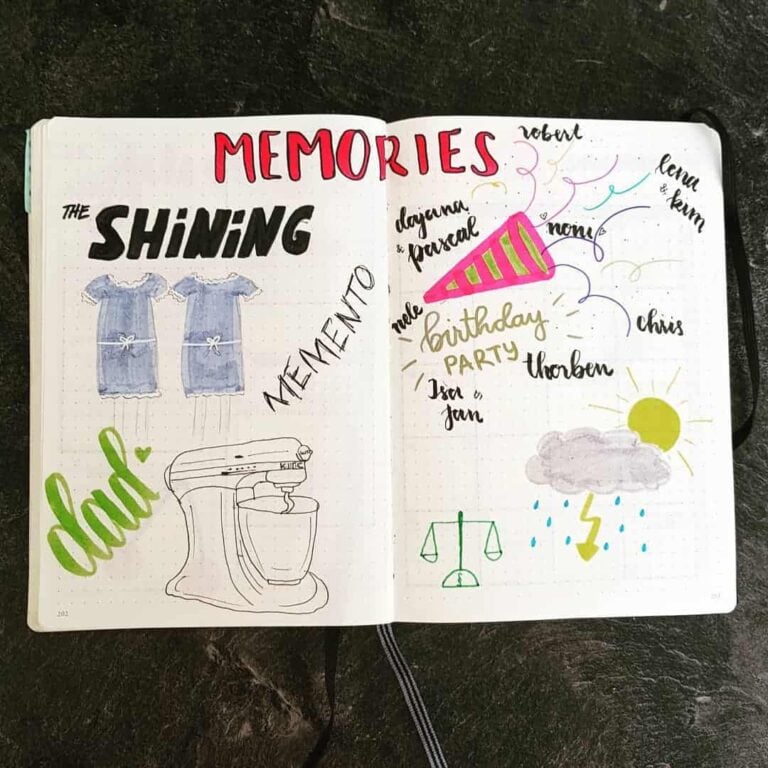 MEMORIES
THE SHiNiNG
MEMENTO
dad
202
robert
lena
& kim
dajana
& pascal
nele
birthday
PARTY
chris
thorben
Isa &
Jan